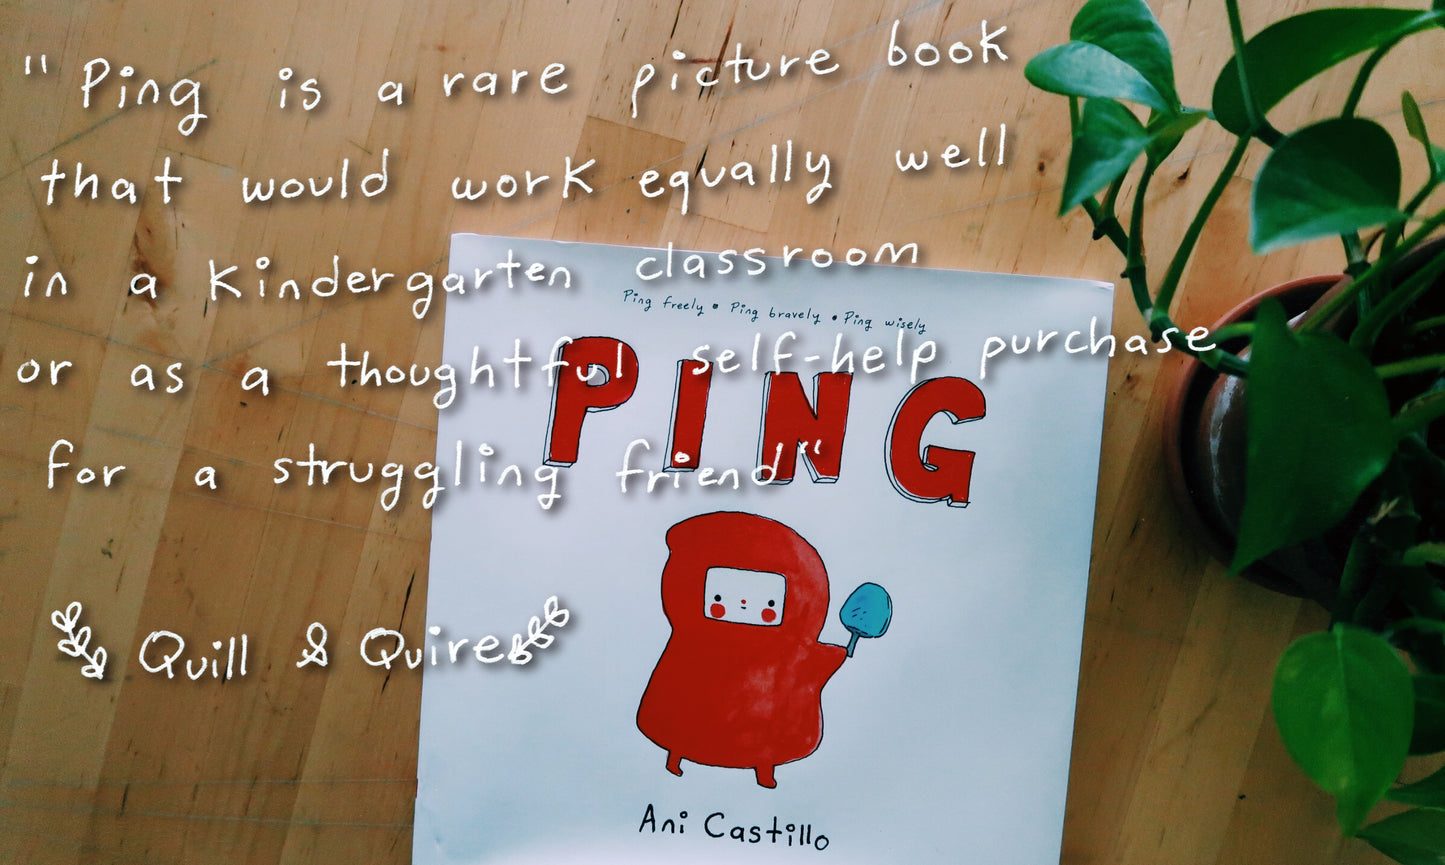 "Ping is a rare picture book
that would work equally well
in a kindergarten classroom
or as a thoughtful self-help purchase
for a struggling friend"
Quill & Quire
Ping freely • Ping bravely • Ping wisely
PING
Ani Castillo